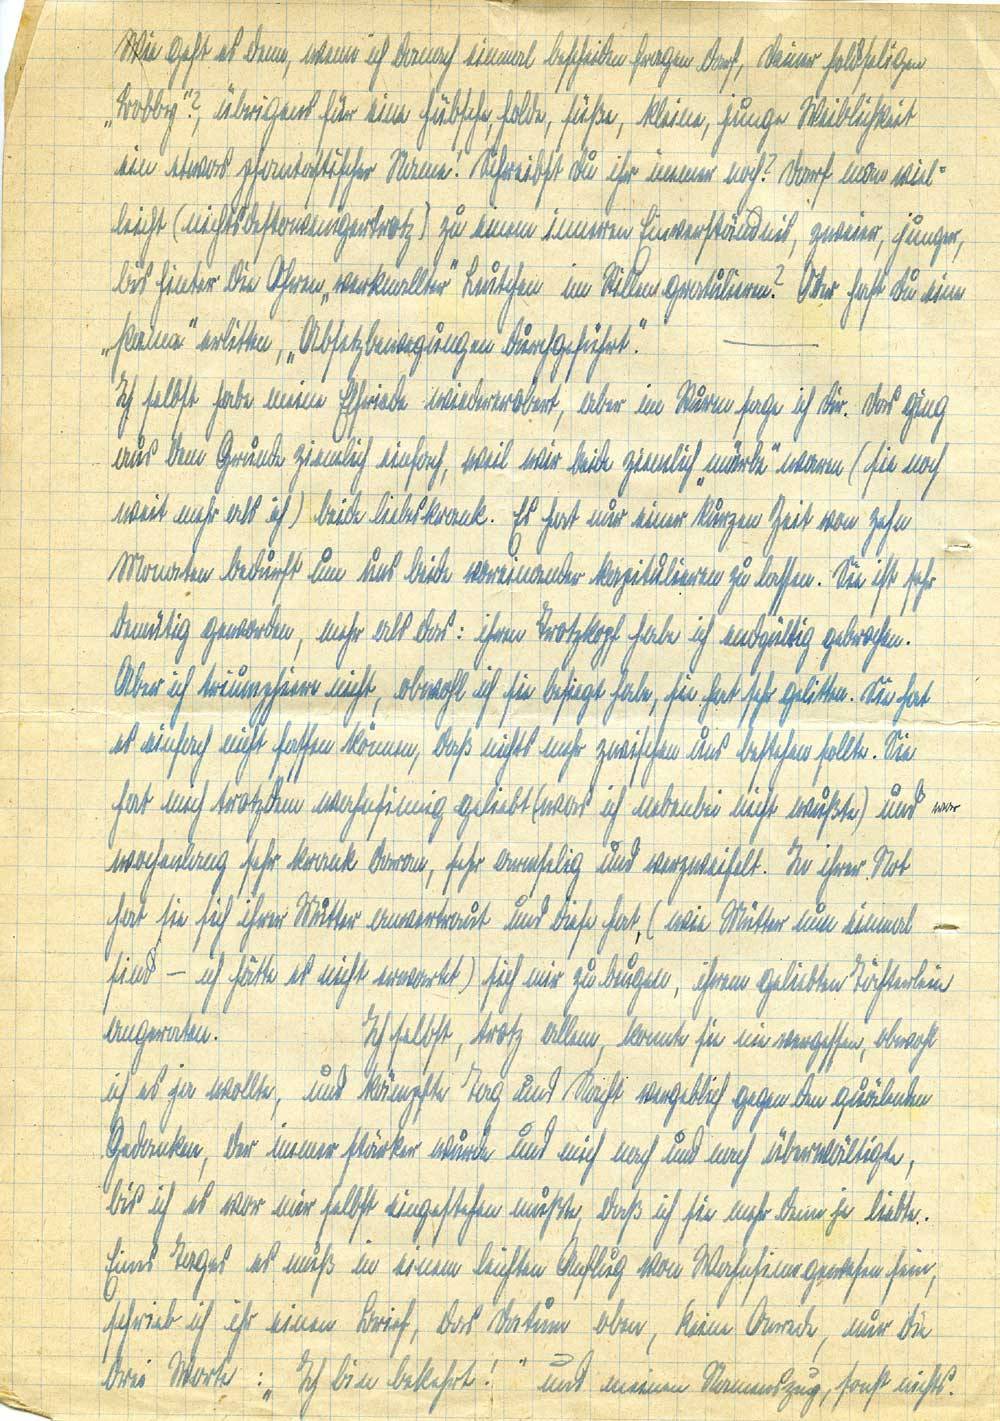 Wie geht es denn, wenn ich danach einmal bescheiden fragen darf, Deiner holdseligen
„Bobby"?, übrigens für eine hübsche, holde, süße, kleine, junge Weiblichkeit
ein etwas phantastischer Name! Schreibst Du ihr immer noch? Darf man viel=
leicht (nichtsdestowenigertrotz) zu einem inneren Einverständnis, zweier, junger,
bis hinter die Ohren „verknallter" Leutchen im Stillen gratulieren? Oder hast Du eine
erlitten, „Absetzbewegungen durchgeführt".
Ich selbst habe meine Elfriede wiedererobert, aber im Sturm sage ich Dir. Das ging
aus dem Grunde ziemlich einfach, weil wir beide ziemlich „mürbe" waren (sie noch
weit mehr als ich) beide liebeskrank. Es hat nur einer kurzen Zeit von zehn
Monaten bedurft um uns beide voreinander kapitulieren zu lassen. Sie ist sehr
demütig geworden, mehr als das: ihren Trotzkopf habe ich endgültig gebrochen.
Aber ich triumphiere nicht, obwohl ich sie besiegt habe, sie hat sehr gelitten. Sie hat
es einfach nicht fassen können, daß nichts mehr zwischen uns bestehen sollte. Sie
hat mich trotzdem wahnsinnig geliebt (was ich nebenbei nicht wußte) und war
wochenlang sehr krank daran, sehr armselig und verzweifelt. In ihrer Not
hat sie sich ihrer Mutter anvertraut und diese hat, (wie Mütter nun einmal
sind – ich hätte es nicht erwartet) sich mir zu beugen, ihrem geliebten Töchterlein
angeraten. Ich selbst, trotz allem, konnte sie nie vergessen, obwohl
ich es ja wollte, und kämpfte Tag und Nacht vergeblich gegen den quälenden
Gedanken, der immer stärker wurde und mich nach und nach überwältigte,
bis ich es vor mir selbst eingestehen mußte, daß ich sie mehr denn je liebte.
Eines Tages es muß in einem leichten Anflug von Wahnsinn gewesen sein,
schrieb ich ihr einen Brief, das Datum oben, keine Anrede, nur die
drei Worte: „Ich bin bekehrt!" und meinen Namenszug, sonst nichts.